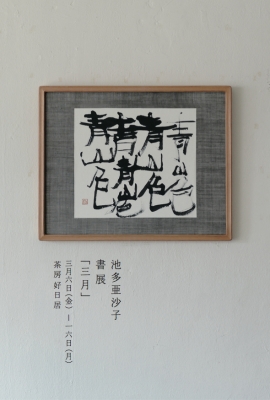 青山色
青山色
青山色
池多亜沙子
書展
「三月」
三月六日(金)ー一六日(月)
茶房好日居